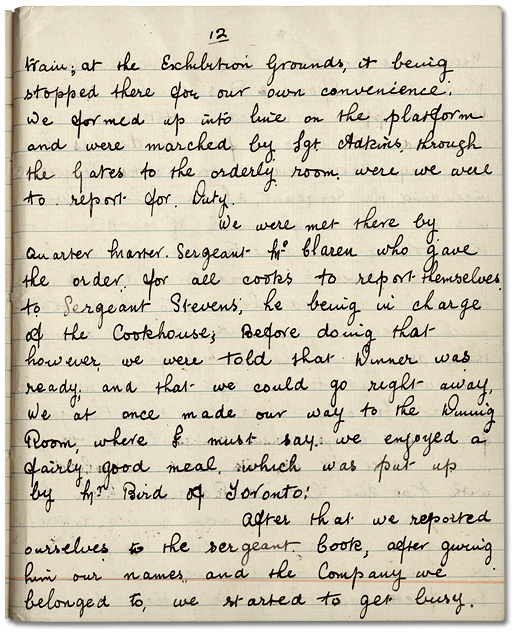 12
train; at the Exhibition Grounds, it being
stopped there for our own convenience.
We formed up into line on the platform
and were marched by Sgt Adkins, through
the Gates to the orderly room, were we were
to report for Duty.
We were met there by
Quarter Master Sergeant Mc Claren who gave
the order, for all cooks to report themselves
to Sergeant Stevens, he being in charge
of the Cookhouse; Before doing that
however, we were told that Dinner was
ready, and that we could go right away,
We at once made our way to the Dining
Room, where I must say we enjoyed a
fairly good meal, which was put up
by Mr Bird of Toronto.
After that we reported
ourselves to the sergeant Cook, after giving
him our names, and the Company we
belonged to, we started to get busy.